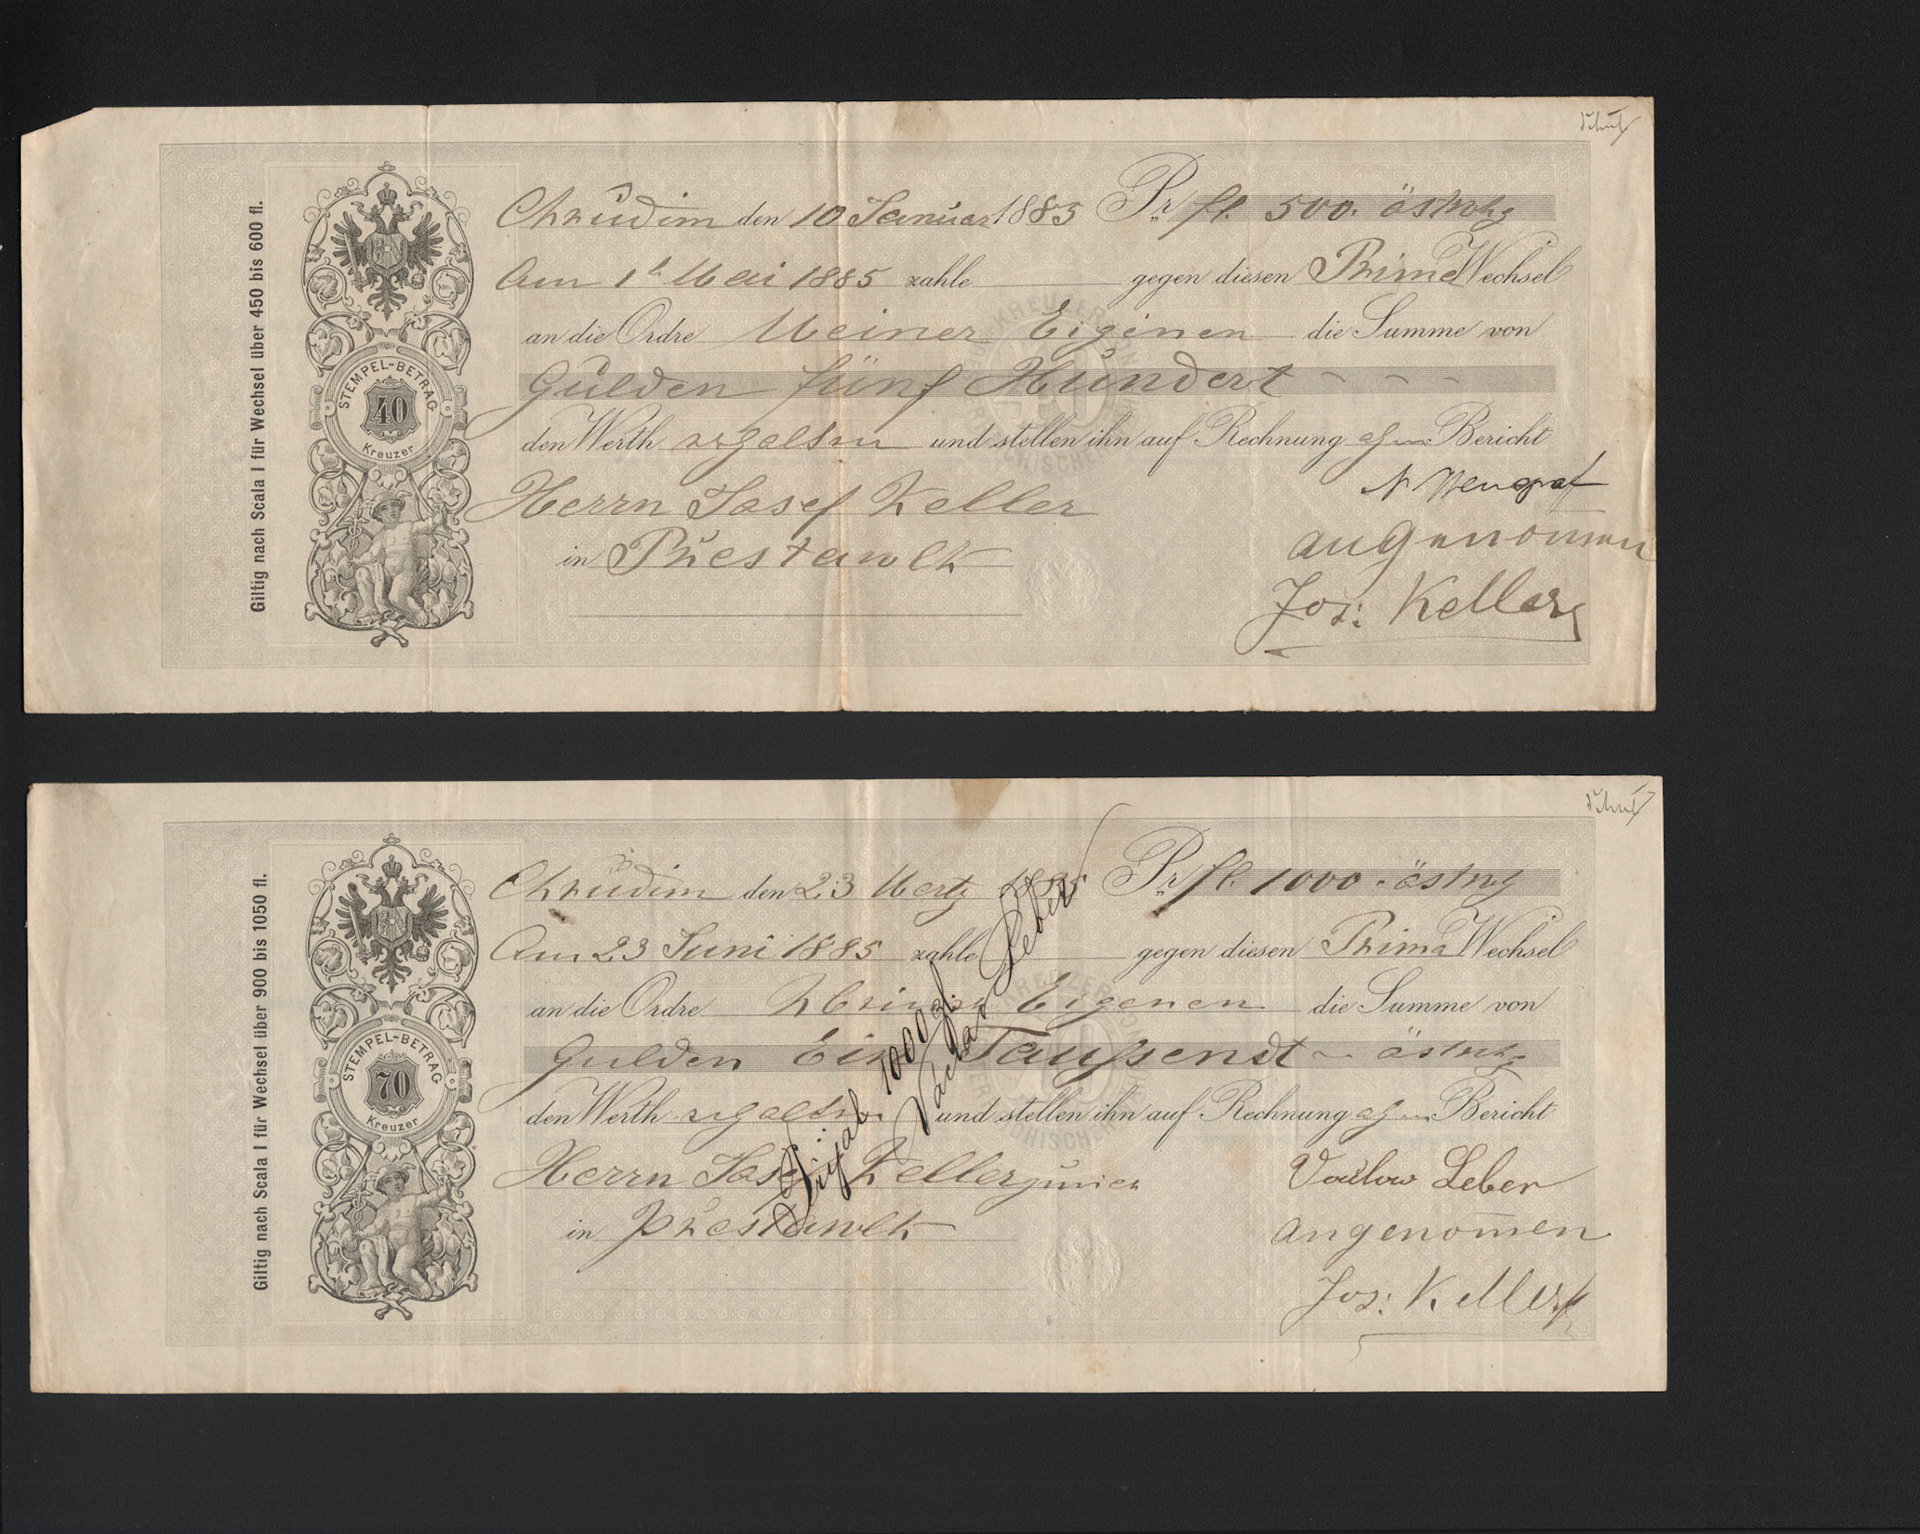 Giltig nach Scala I für Wechsel über 450 bis 600 fl.
STEMPEL-BETRAG
40
Kreuzer
Chrudim den 10 Januar 1885 Pr fl. 500. östrwhg
Am 1t Mai 1885 zahle gegen diesen Prima Wechsel
an die Ordre Meiner Eigenen die Summe von
Gulden fünf Hundert
den Werth erhalten und stellen ihn auf Rechnung ohne Bericht
Herrn Josef Keller
in Přestawlk
angenommen
Jos: Keller
Giltig nach Scala I für Wechsel über 900 bis 1050 fl.
STEMPEL-BETRAG
70
Kreuzer
Chrudim den 23 Mertz 1885 Pr fl. 1000. östrwhg
Am 23 Juni 1885 zahle gegen diesen Prima Wechsel
an die Ordre Meiner Eigenen die Summe von
Gulden Ein Taußendt östrwhg
den Werth erhalten und stellen ihn auf Rechnung ohne Bericht
Herrn Josef Keller junier
in Přestawlk
Václav Leber
angenom̄en
Jos: Keller
Přijal 1000 zl.
Václav Leber